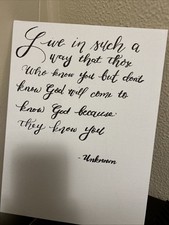 Live in such a
way that those
Who know you but dont
know God will come to
know God because
they know you
- Unknown